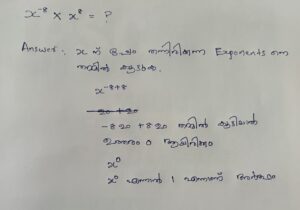 x⁻⁸ × x⁸ = ?
Answer : x ന് ഒപ്പം തന്നിരിക്കുന്ന Exponents നെ
തമ്മിൽ കൂട്ടുക.
x⁻⁸⁺⁸
-8 ഉം +8 ഉം തമ്മിൽ കൂട്ടിയാൽ
ഉത്തരം 0 ആയിരിക്കും
x⁰
x⁰ എന്നാൽ 1 എന്നാണ് അർത്ഥം